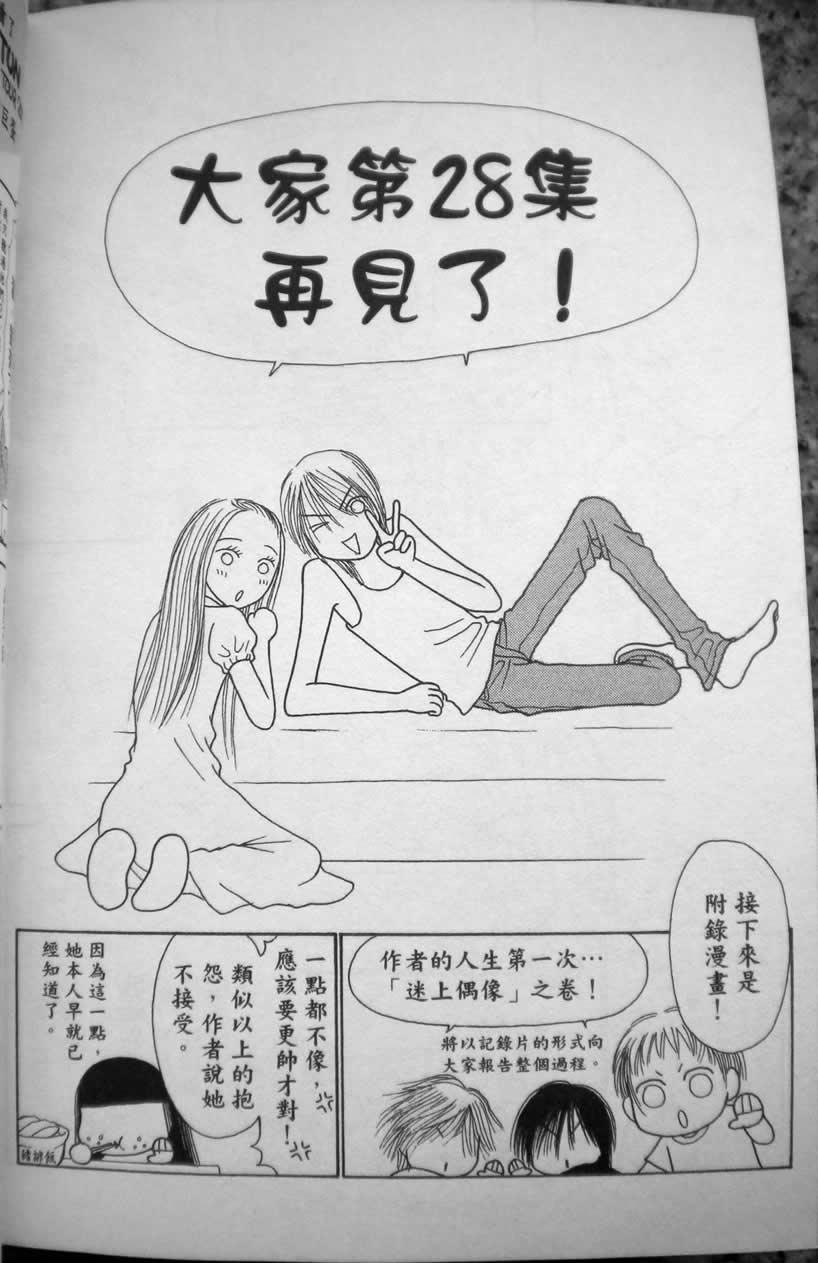 大家第28集
再見了！
接下來是
附錄漫畫！
作者的人生第一次…
「迷上偶像」之卷！
將以記錄片的形式向
大家報告整個過程。
一點都不像，
應該要更帥才對！
類似以上的抱
怨，作者說她
不接受。
因為這一點，
她本人早就已
經知道了。
豬排飯